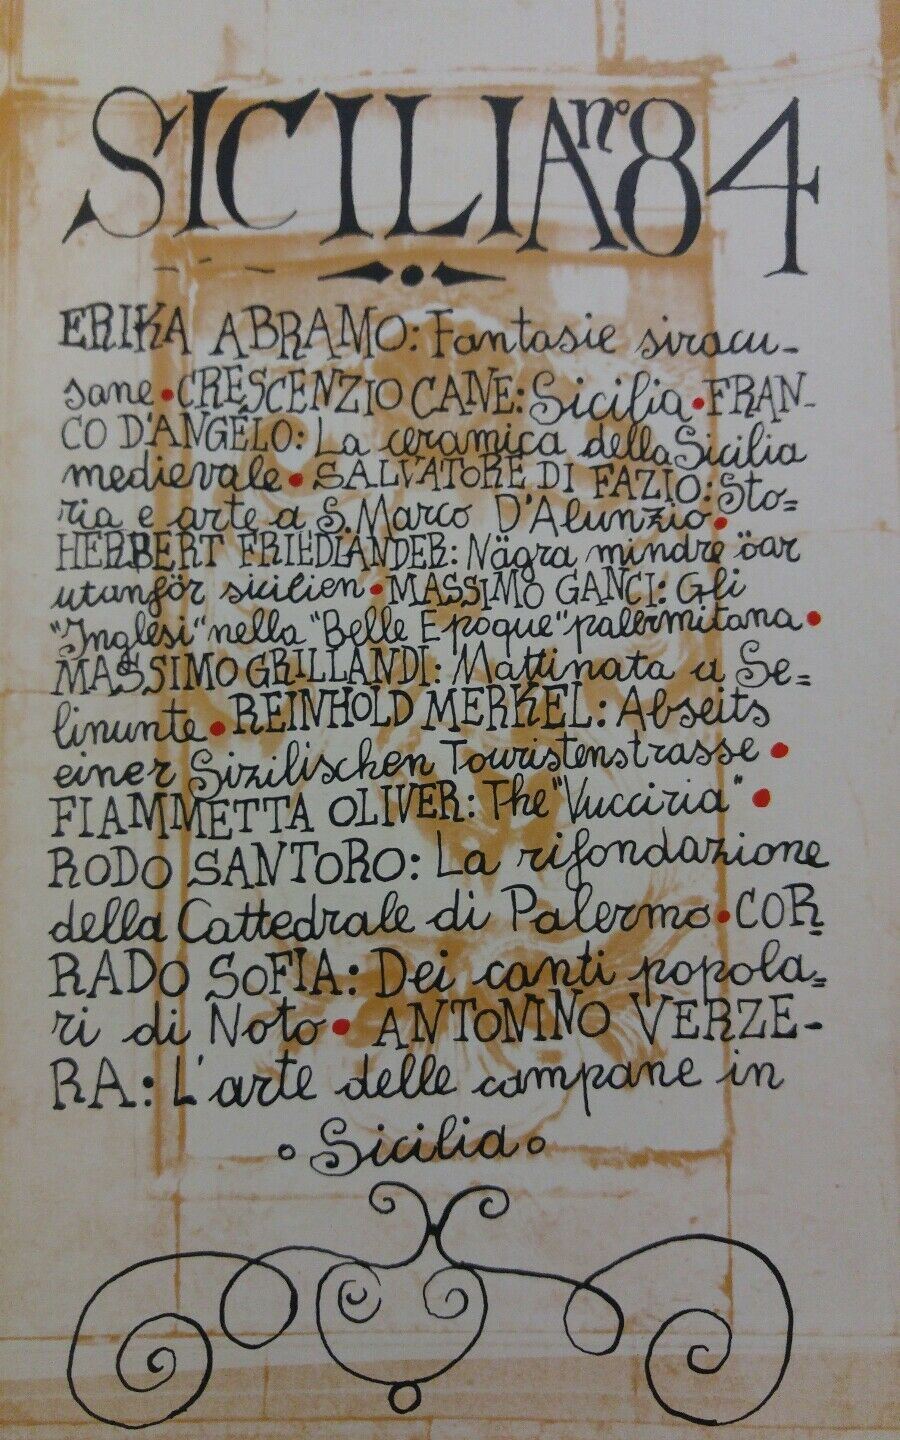 SICILIA n° 84
ERIKA ABRAMO: Fantasie siracu-
sane • CRESCENZIO CANE: Sicilia • FRAN-
CO D'ANGELO: La ceramica della Sicilia
medievale • SALVATORE DI FAZIO: Sto=
ria e arte a S. Marco D'Alunzio •
HERBERT FRIEDLANDER: Nägra mindre öar
utanför sicilien • MASSIMO GANCI: Gli
"Inglesi" nella "Belle Epoque" palermitana •
MASSIMO GRILLANDI: Mattinata a Se=
linunte • REINHOLD MERKEL: Abseits
einer Sizilischen Touristenstrasse •
FIAMMETTA OLIVER: The "Vucciria" •
RODO SANTORO: La rifondazione
della Cattedrale di Palermo • COR-
RADO SOFIA: Dei canti popola=
ri di Noto • ANTONINO VERZE-
RA: L'arte delle campane in
Sicilia